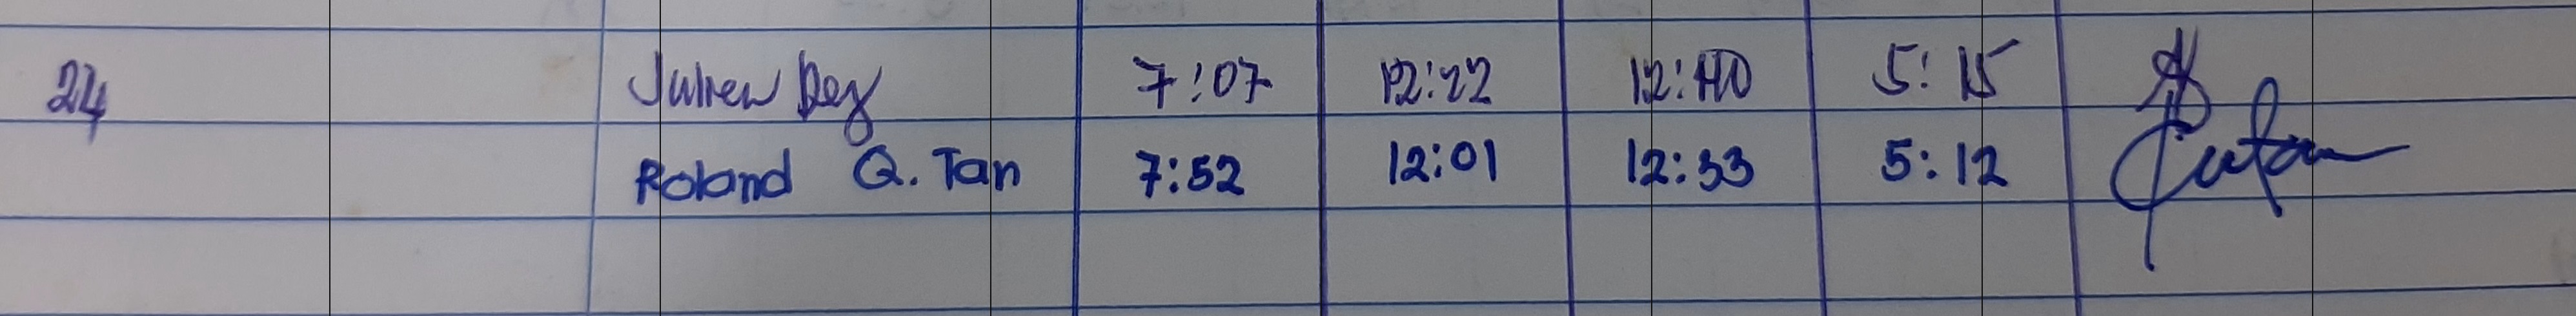 24 Julien Rey 7:07 12:22 12:40 5:15
Roland Q. Tan 7:52 12:01 12:33 5:12